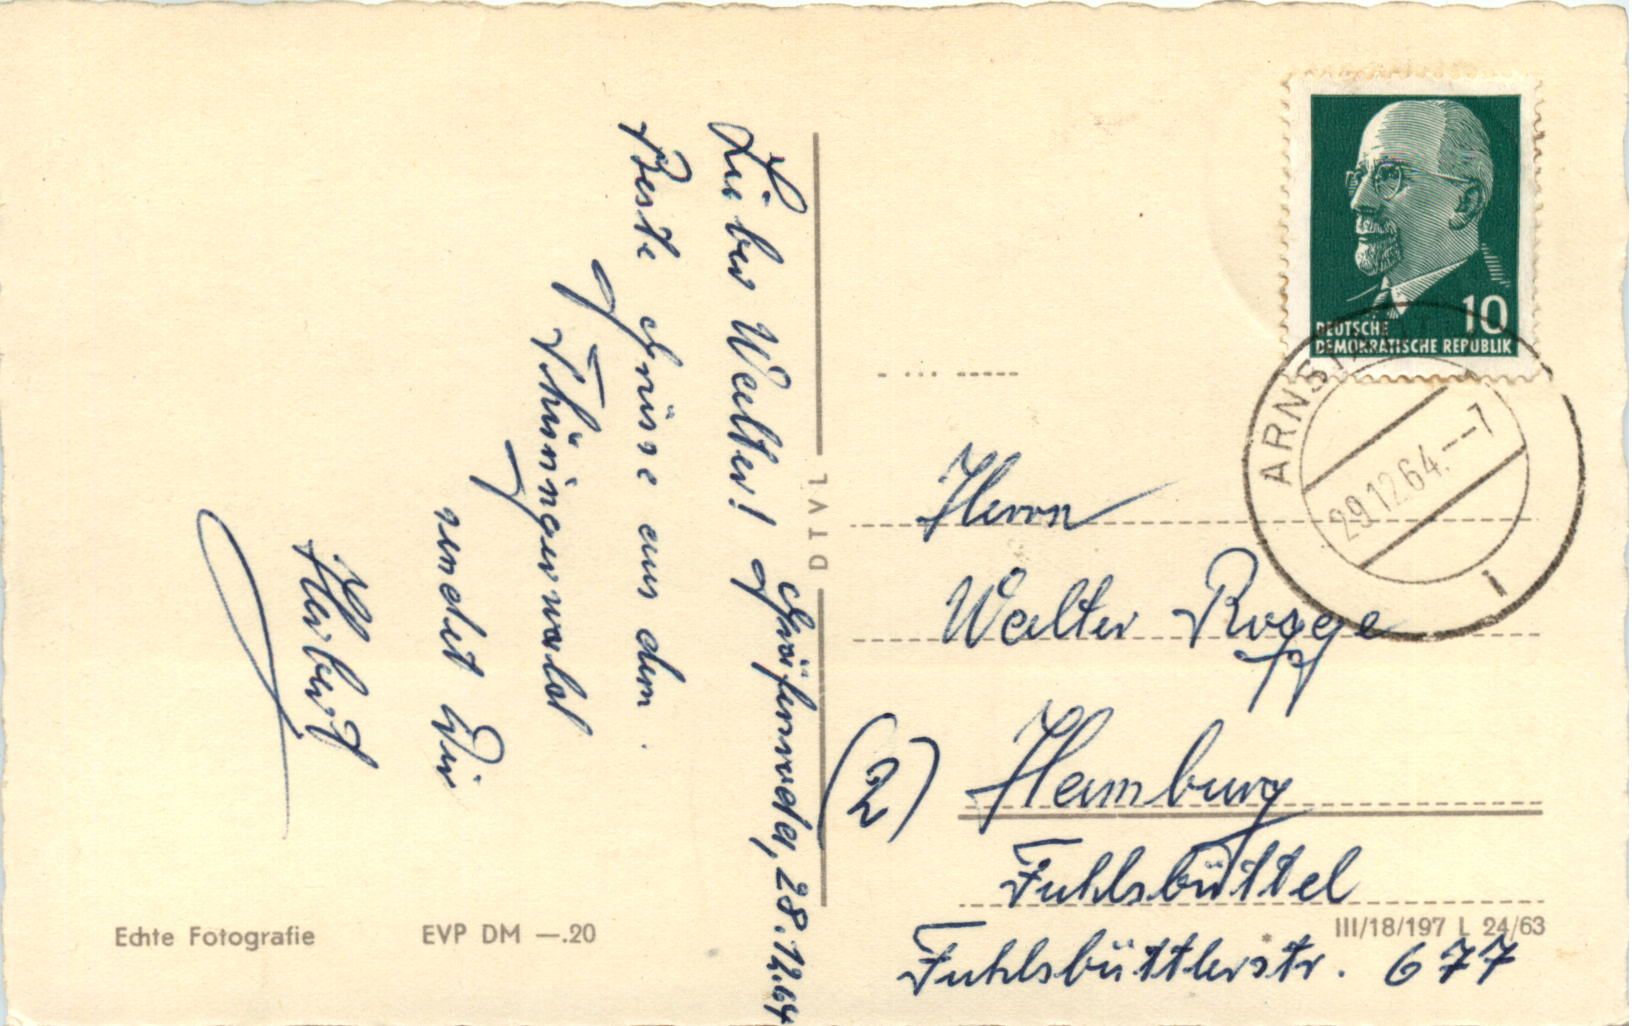 Gräfenroda, 28.12.64
Lieber Walter!
Beste Grüsse aus dem
Thüringerwald
sendet Dir
Herbert
Echte Fotografie
EVP DM —.20
DTVL
10
DEUTSCHE
DEMOKRATISCHE REPUBLIK
29.12.64.--7
i
Herrn
Walter Rogge
(2) Hamburg
Fuhlsbüttel
III/18/197 L 24/63
Fuhlsbüttlerstr. 677